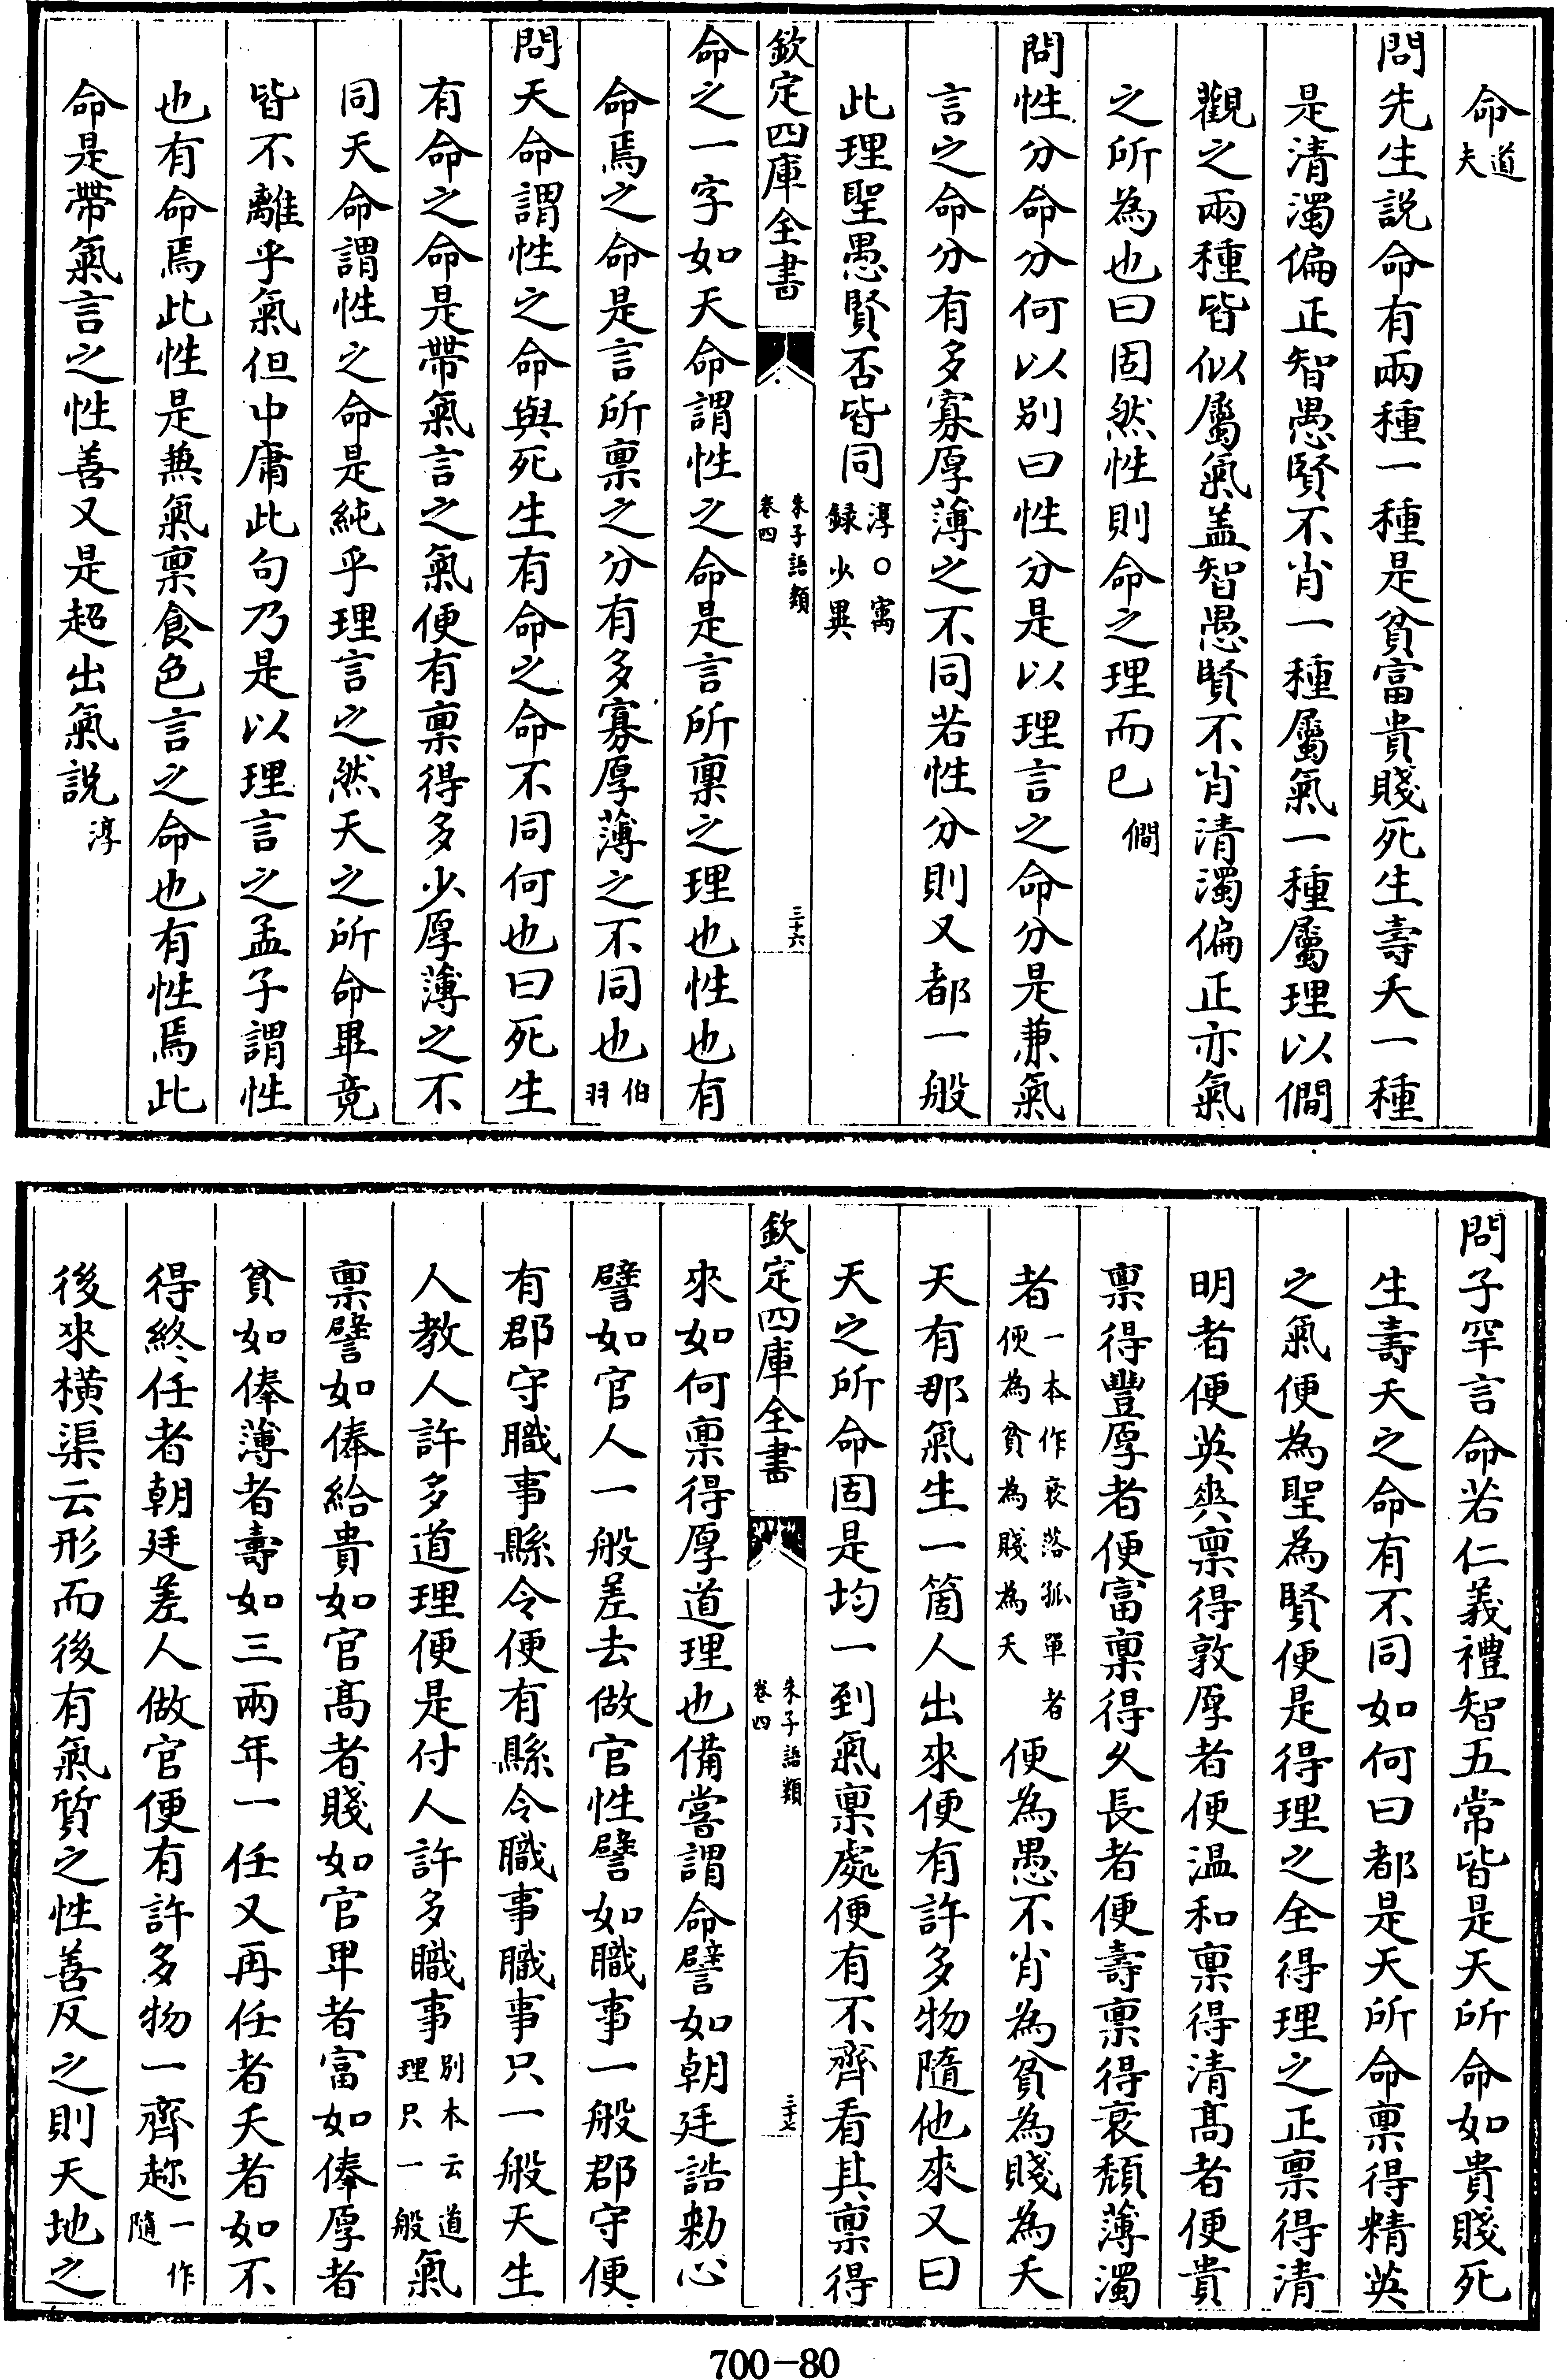 命道夫
問先生説命有兩種一種是貧富貴賤死生壽夭一種
是清濁偏正智愚賢不肖一種屬氣一種屬理以僩
觀之兩種皆似屬氣盖智愚賢不肖清濁偏正亦氣
之所為也曰固然性則命之理而已僩
問性分命分何以别曰性分是以理言之命分是兼氣
言之命分有多寡厚薄之不同若性分則又都一般
此理聖愚賢否皆同淳○㝢録少異
欽定四庫全書
朱子語類
卷四
三十六
命之一字如天命謂性之命是言所稟之理也性也有
命焉之命是言所稟之分有多寡厚薄之不同也伯羽
問天命謂性之命與死生有命之命不同何也曰死生
有命之命是帶氣言之氣便有稟得多少厚薄之不
同天命謂性之命是純乎理言之然天之所命畢竟
皆不離乎氣但中庸此句乃是以理言之孟子謂性
也有命焉此性是兼氣稟食色言之命也有性焉此
命是帶氣言之性善又是超出氣説淳
問子罕言命若仁義禮智五常皆是天所命如貴賤死
生壽夭之命有不同如何曰都是天所命稟得精英
之氣便為聖為賢便是得理之全得理之正稟得清
明者便英爽稟得敦厚者便温和稟得清髙者便貴
稟得豐厚者便富稟得久長者便壽稟得衰頽薄濁
者一本作衰落孤單者便為貧為賤為夭便為愚不肖為貧為賤為夭
天有那氣生一箇人出來便有許多物隨他來又曰
天之所命固是均一到氣稟處便有不齊看其稟得
欽定四庫全書
朱子語類
卷四
三十七
來如何稟得厚道理也備嘗謂命譬如朝廷誥勅心
譬如官人一般差去做官性譬如職事一般郡守便
有郡守職事縣令便有縣令職事職事只一般天生
人教人許多道理便是付人許多職事别本云道理只一般氣
稟譬如俸給貴如官髙者賤如官卑者富如俸厚者
貧如俸薄者壽如三兩年一任又再任者夭者如不
得終任者朝廷差人做官便有許多物一齊趂一作隨
後來横渠云形而後有氣質之性善反之則天地之
700-80